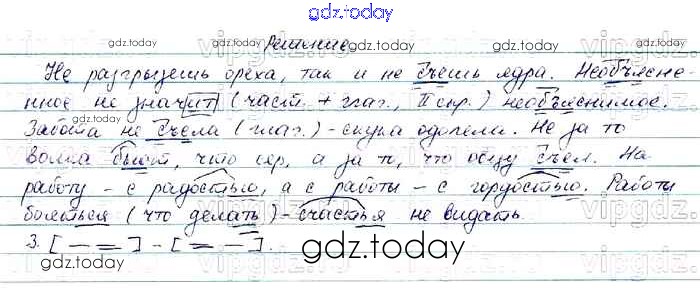 gdz.today
Решение
Не разгрызешь ореха, так и не съешь ядра. Необъясне-
нное не значит (част. + глаг., II спр.) необъяснимое.
Забота не съела (глаг.) - скука одолела. Не за то
волка бьют, что сер, а за то, что овцу съел. На
работу - с радостью, а с работы - с гордостью. Работы
бояться (что делать) - счастья не видать.
3. [ — = ] - [ = — ].
gdz.today